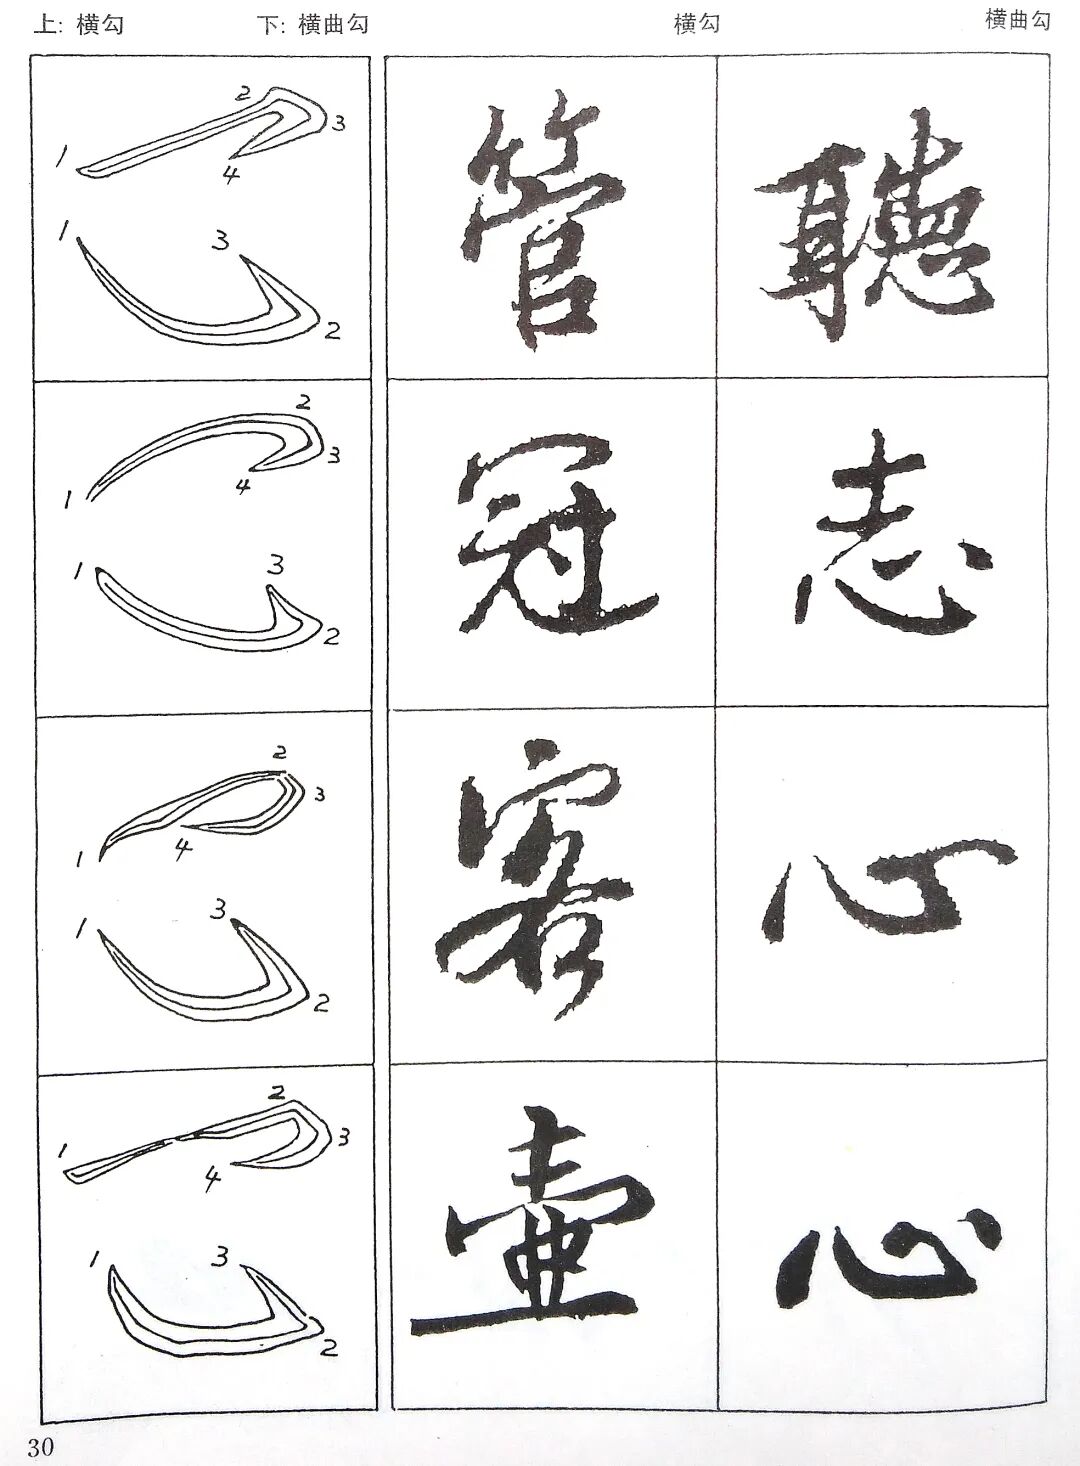 上: 横勾 下: 横曲勾 横勾 横曲勾
1 2 3 4
1 2 3
管 聽
1 2 3 4
1 2 3
冠 志
1 2 3 4
1 2 3
客 心
1 2 3 4
1 2 3
壺 心
30